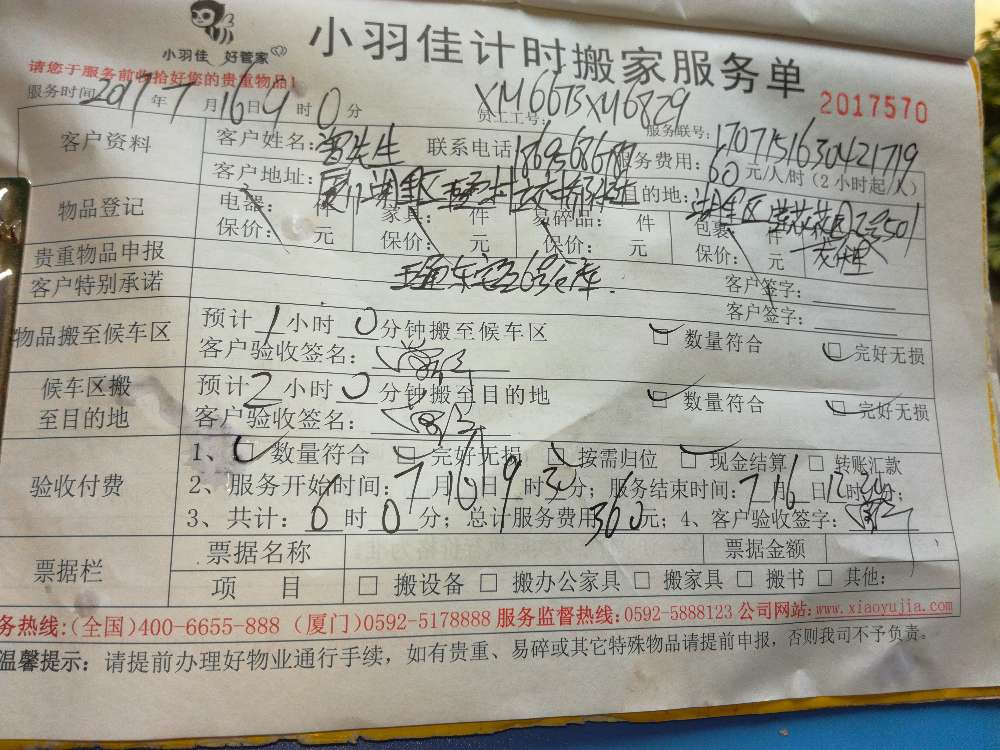 小羽佳 好管家
小羽佳计时搬家服务单
请您于服务前收拾好您的贵重物品!
2017570
服务时间: 2017年7月16日9时0分 员工工号: XM6673XM6829 服务联号: 1707151630421719
客户资料 客户姓名: 曾先生 联系电话: 服务费用: 60元/人/时(2小时起/人)
客户地址: 厦门湖里区 目的地: 湖里区
物品登记 电器: 件 家具: 件 易碎品: 件 包裹: 件
保价: 元 保价: 元 保价: 元 保价: 元
贵重物品申报 客户签字:
客户特别承诺 客户签字:
物品搬至候车区 预计1小时0分钟搬至候车区 □ 数量符合 □ 完好无损
客户验收签名:
候车区搬至目的地 预计2小时0分钟搬至目的地 □ 数量符合 □ 完好无损
客户验收签名:
验收付费 1、□ 数量符合 □ 完好无损 □ 按需归位 □ 现金结算 □ 转账汇款
2、服务开始时间: 7月16日9时 分; 服务结束时间: 7月16日12时 分;
3、共计: 时0分; 总计服务费用360元; 4、客户验收签字:
票据栏 票据名称 票据金额
项 目 □ 搬设备 □ 搬办公家具 □ 搬家具 □ 搬书 □ 其他:
务热线:(全国)400-6655-888 (厦门)0592-5178888 服务监督热线:0592-5888123 公司网站:www.xiaoyujia.com
温馨提示: 请提前办理好物业通行手续, 如有贵重、易碎或其它特殊物品请提前申报, 否则我司不予负责。